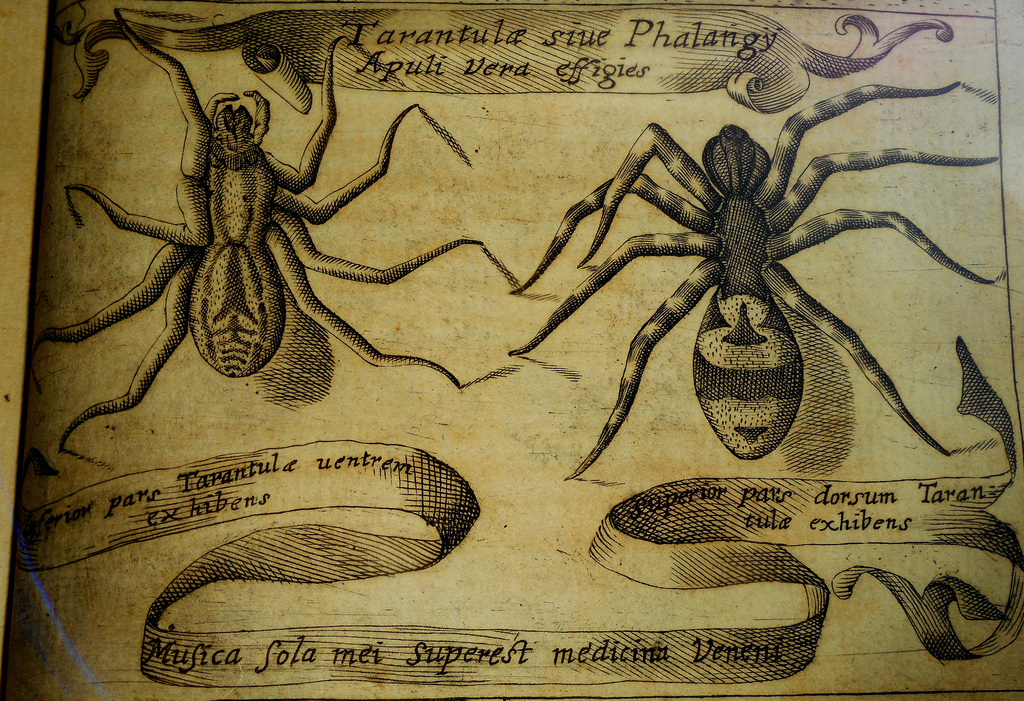 Tarantulæ siue Phalangy
Apuli vera effigies
Inferior pars Tarantulæ ventrem
exhibens
Superior pars dorsum Taran-
tulæ exhibens
Musica sola mei superest medicina Veneni